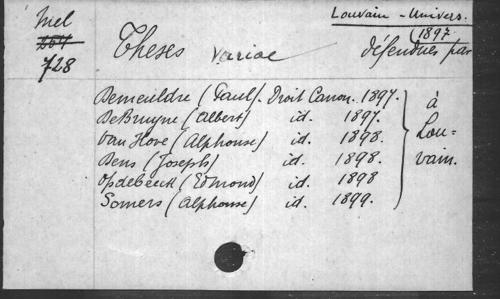 Mel Louvain - Univers.
264 (1897
728 Theses variae défendues par
Demeuldre (Paul). Droit Canon. 1897.
De Bruyne (Albert) id. 1897.
Van Hove (Alphonse) id. 1898.
Dens (Joseph) id. 1898.
Opdebeeck (Edmond) id. 1898
Somers (Alphonse) id. 1899.
à
Lou-
vain.